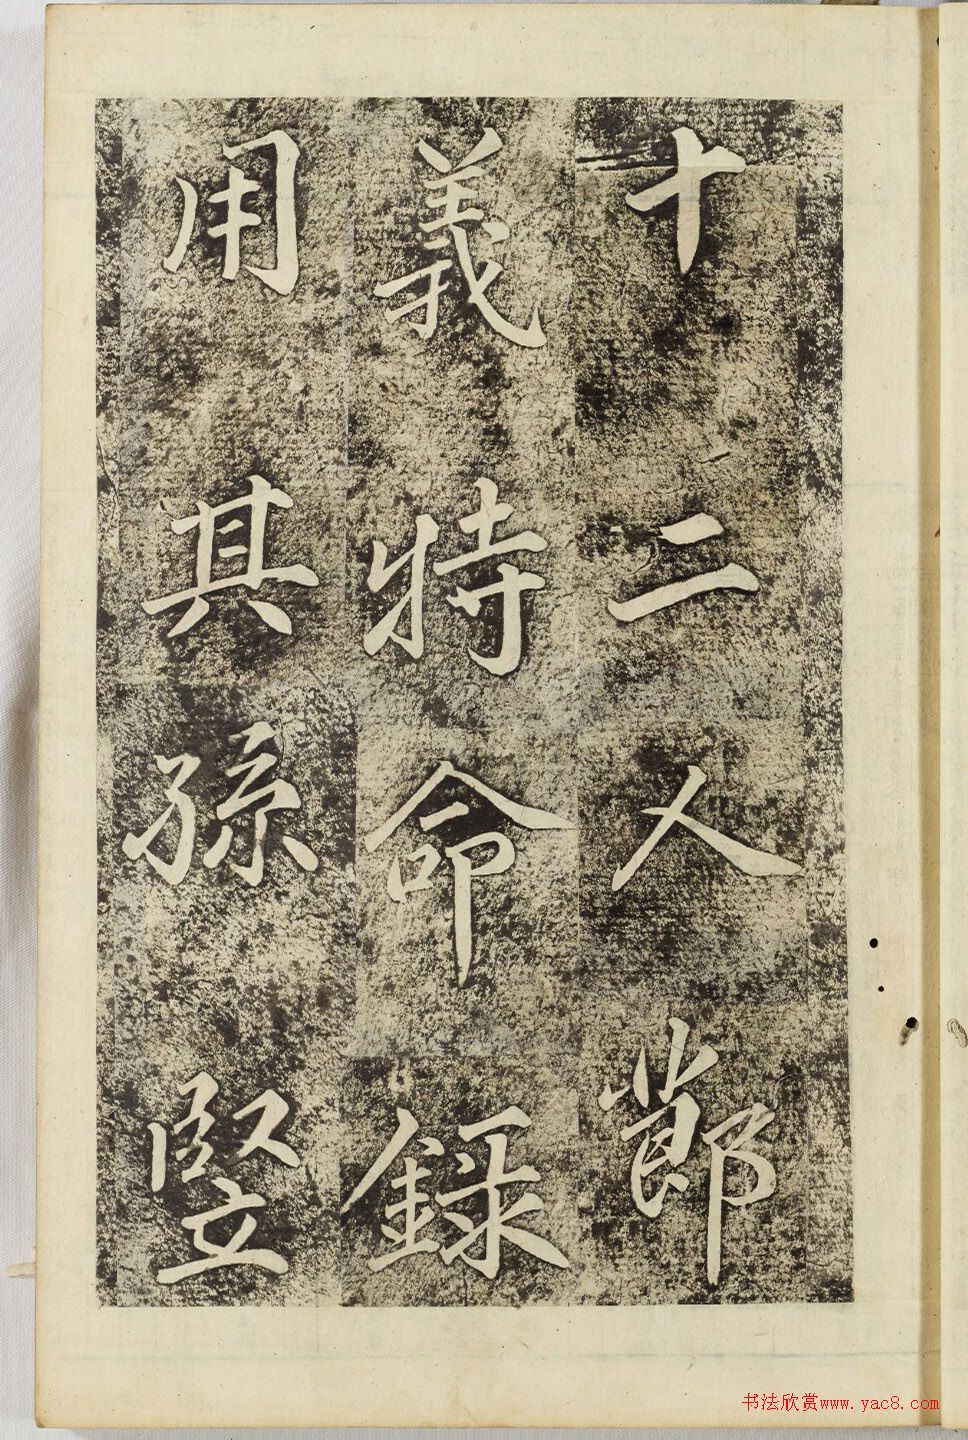 十二人節
義特命錄
用其孫竪
书法欣赏www.yac8.com